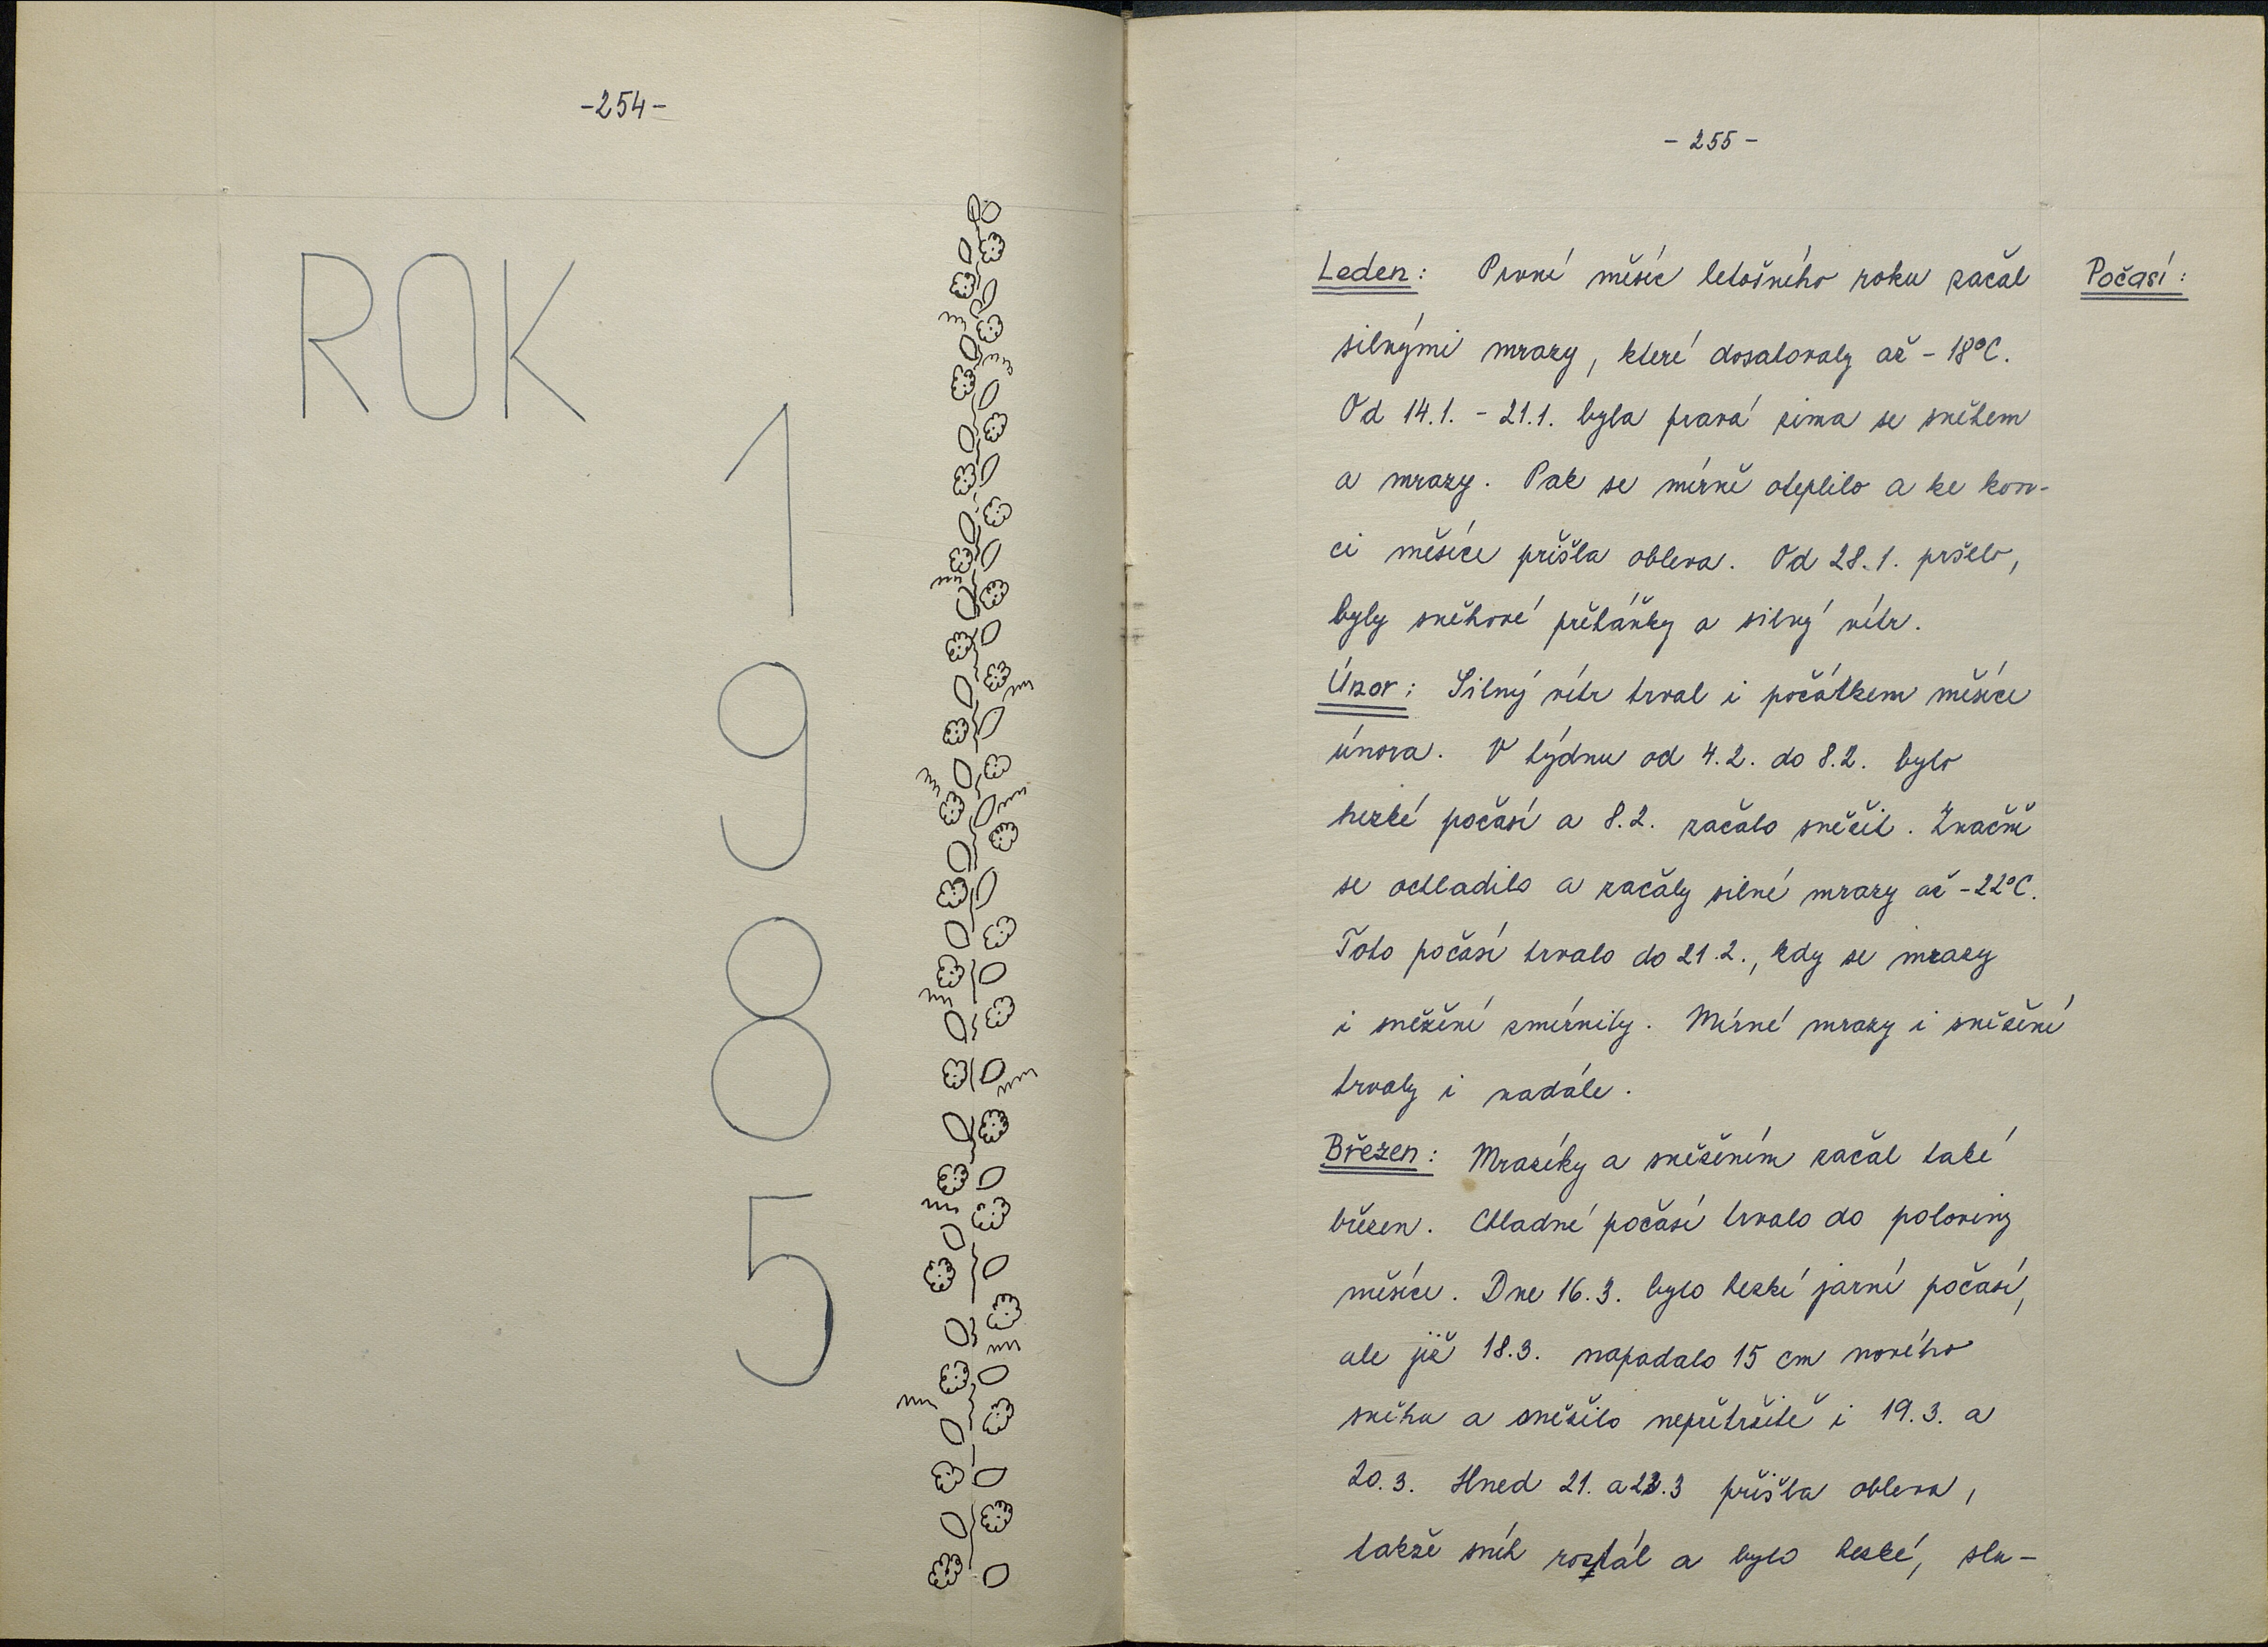 -254-
ROK
1
9
8
5
- 255 -
Počasí:
Leden: První měsíc letošního roku začal
silnými mrazy, které dosahovaly až - 18°C.
Od 14.1. - 21.1. byla pravá zima se sněhem
a mrazy. Pak se mírně oteplilo a ke kon-
ci měsíce přišla obleva. Od 28.1. pršelo,
byly sněhové přeháňky a silný vítr.
Únor: Silný vítr trval i počátkem měsíce
února. V týdnu od 4.2. do 8.2. bylo
hezké počasí a 8.2. začalo sněžit. Značně
se ochladilo a začaly silné mrazy až -22°C.
Toto počasí trvalo do 21.2., kdy se mrazy
i sněžení zmírnily. Mírné mrazy i sněžení
trvaly i nadále.
Březen: Mrazíky a sněžením začal také
březen. Chladné počasí trvalo do poloviny
měsíce. Dne 16.3. bylo hezké jarní počasí,
ale již 18.3. napadalo 15 cm nového
sněhu a sněžilo nepřetržitě i 19.3. a
20.3. Hned 21. a 22.3 přišla obleva,
takže sníh roztál a bylo hezké, slu-